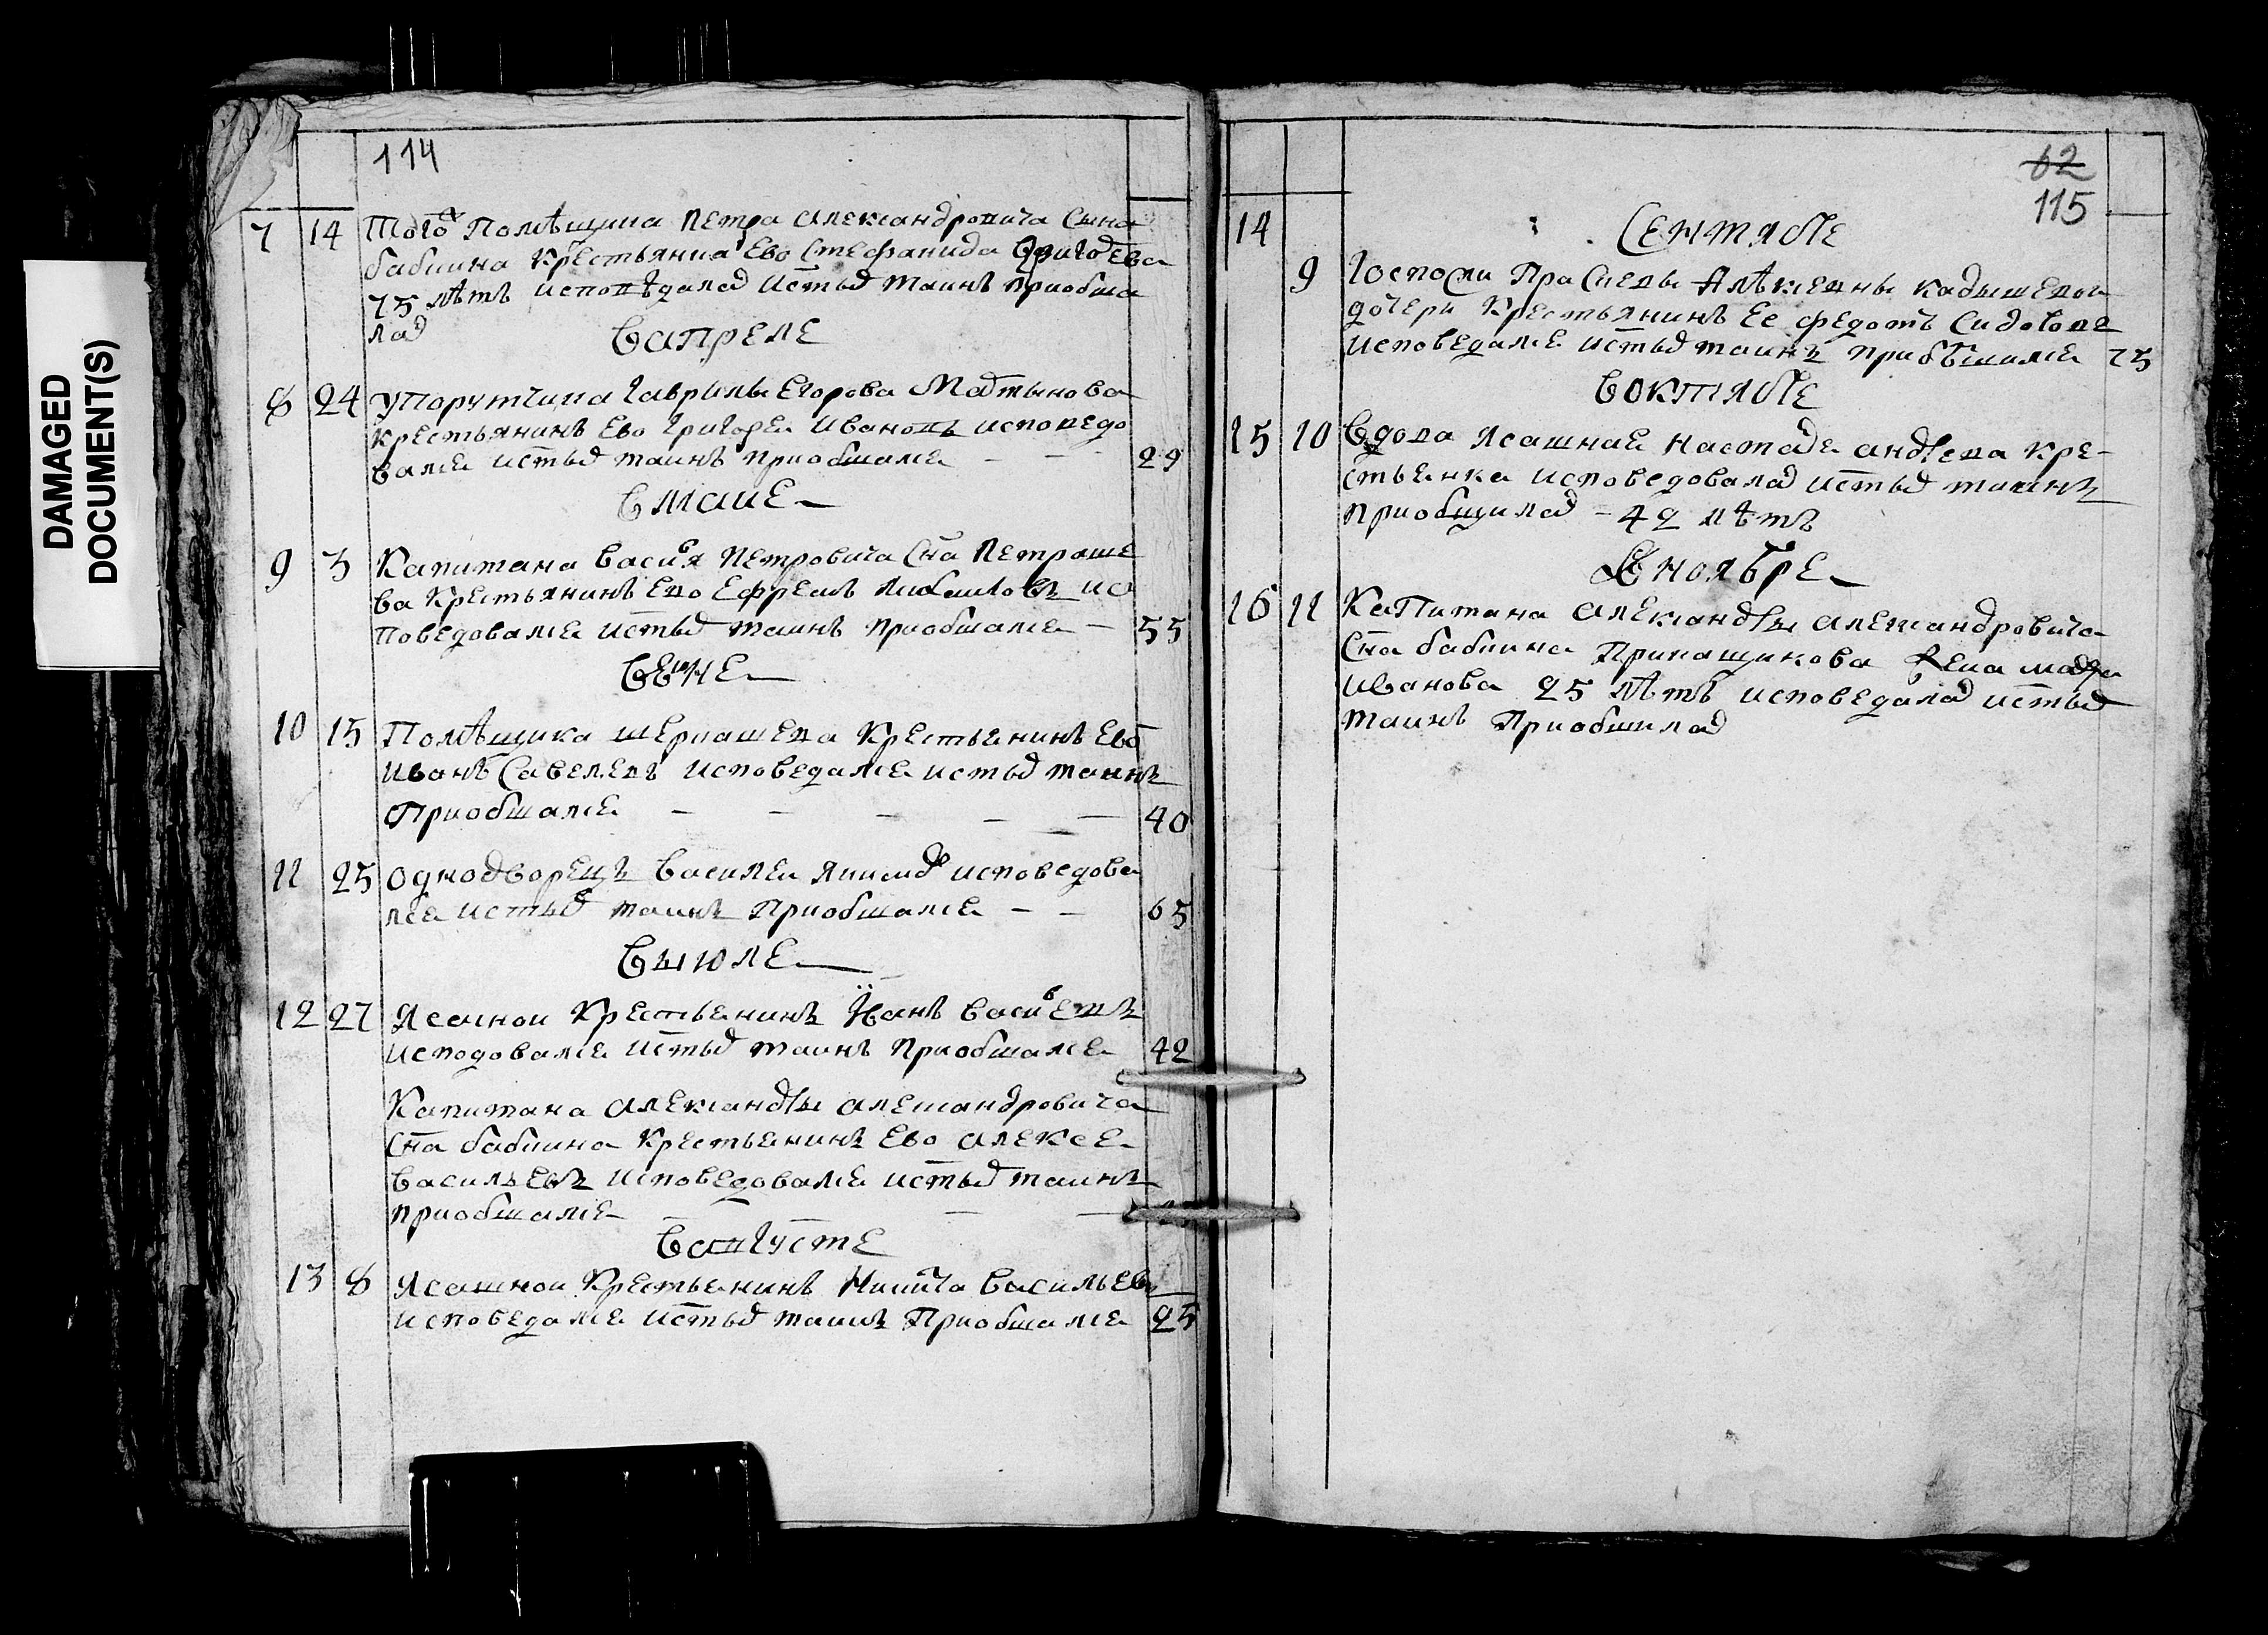 DAMAGED
DOCUMENT(S)
114
7 14 Того Помѣщика Петра Александровича Сына
бабкина крестьянка Ево Стефанида
75 лѣтъ исповѣдалас Истых таинъ приобща
лас
Вапреле
8 24 упорутчика Гаврилы Егорова Мартынова
крестьянинъ Ево Григореи Ивановъ исповедо
вался истых таинъ приобшался 29
Вмаие
9 3 Капитана Василья Петровича Сна Петроше
ва крестьянинъ Ево Ефремъ ис
поведовался истых таинъ приобшался 55
10 15 Помѣщика крестьянинъ Ево
Иванъ Савелевъ исповедался истых таинъ
Приобшался 40
11 25 однодворецъ Василеи исповедова
лся истых таинъ Приобшался 65
Выюле
12 27 Ясачнои крестьенинъ Иванъ Васильевъ
исподовался истых таинъ приобшался 42
Капитана Александры александровича
Сна бабкина крестьенинъ Ево алексе
Васильевъ исповедовался истых таинъ
приобшался
Вавгусте
13 8 Ясашнои крестьенинъ Никита Васильев
исповедался истых таинъ Приобшался 25
62
115
14 Сентябре
9 Госпожи Прасковы Алѣксевны кадышевои
дочери крестьянинъ Ее федотъ Сидоровъ
исповедался истых таинъ приобшился 75
Воктябре
15 10 Вдова Ясашная Настасе андреева кре-
стьенка исповедовалас истых таинъ
приобщилас - 42 лѣтъ
В ноябре
16 11 Капитана Александры александровича
Сна бабкина Прикащикова жена
Иванова 25 лѣтъ исповедалас истых
таинъ Приобшилас